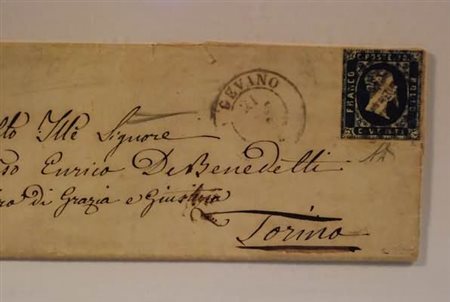 GEVANO
FRANCO
C POSTE 20
BOLLO
C VENTI
lto Illẽ Signore
so Enrico DeBenedetti
ro di Grazia e Giustizia
Torino